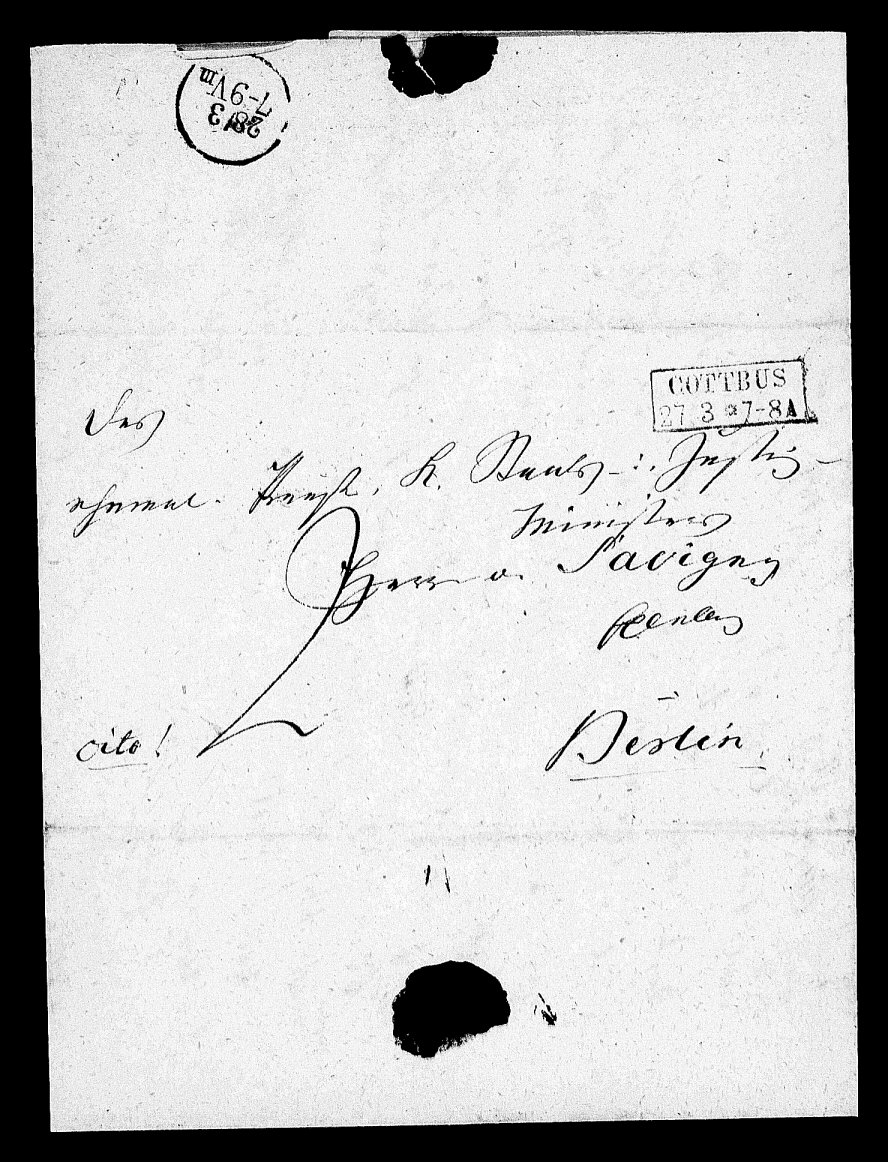 28/3
7-9Vm
COTTBUS
27 3 *7-8A
Des
ehemal. Preuß. K. Staats- u. Justiz-
Ministers
Herrn v. Savigny
Excellenz
Berlin
cito!
2